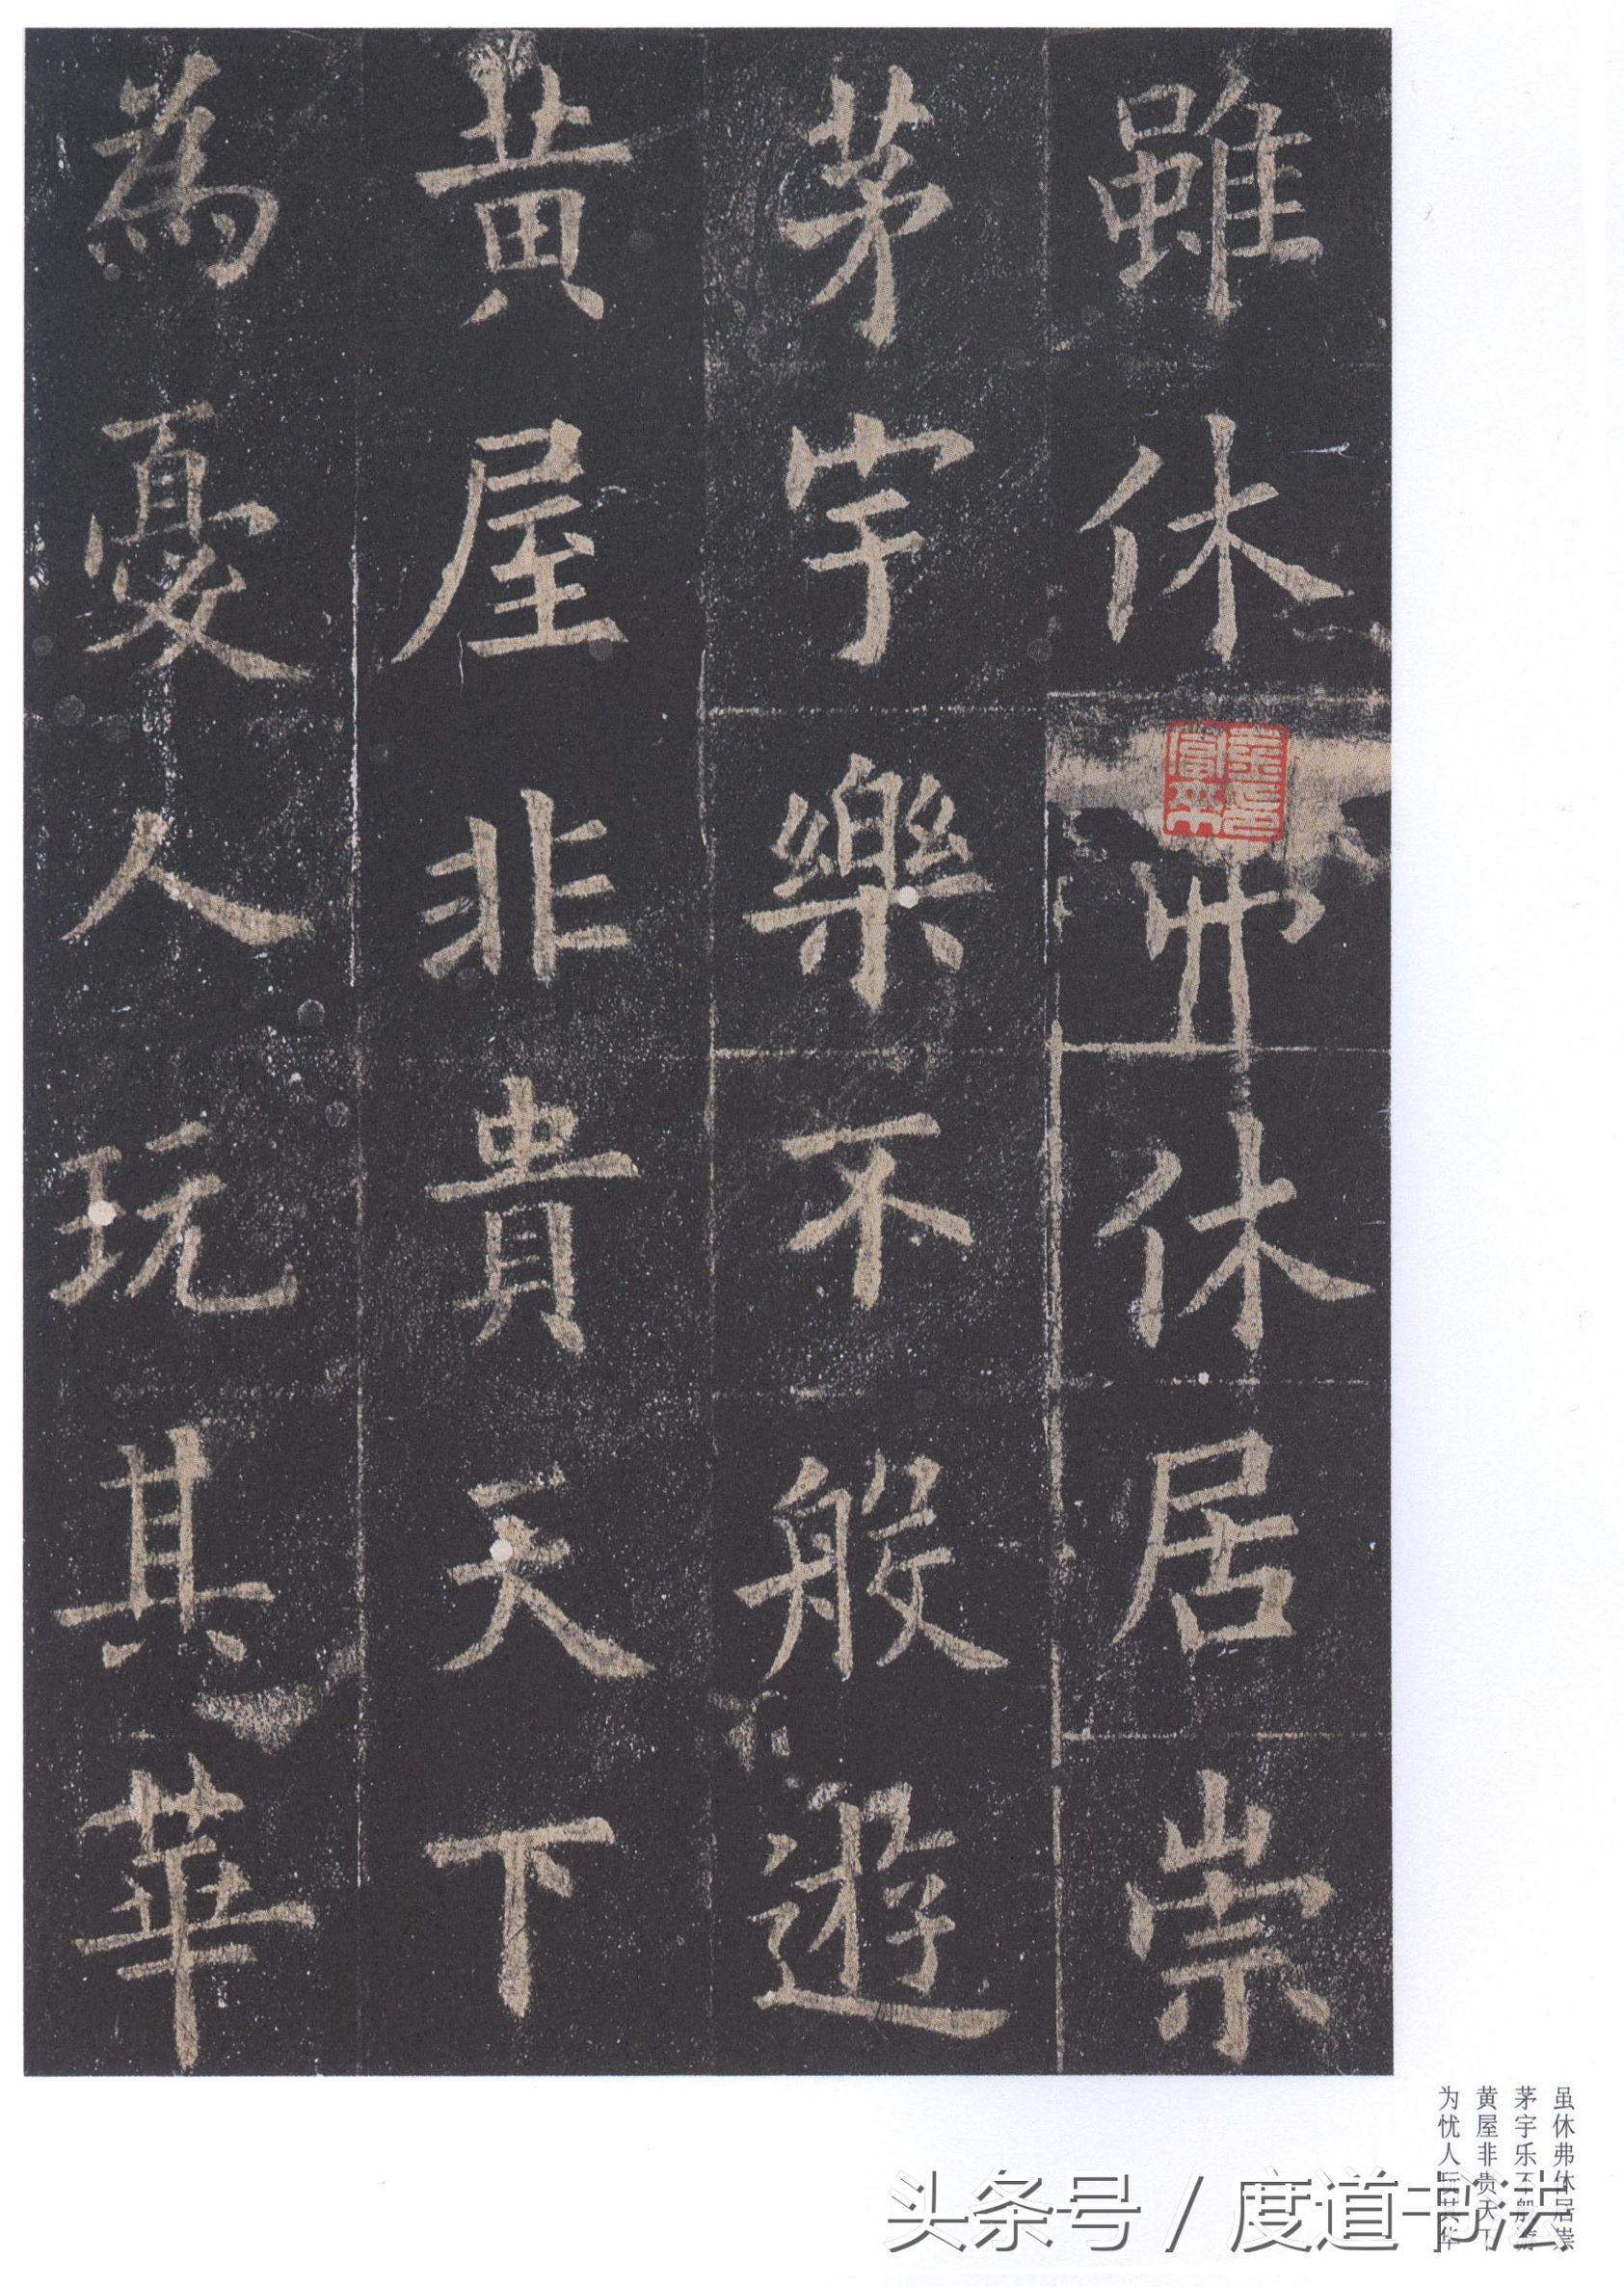 雖休弗休居崇
茅宇樂不般遊
黃屋非貴天下
為憂人玩其華
虽休弗休居崇
茅宇乐不般游
黄屋非贵天下
为忧人玩其华
头条号 / 度道书法